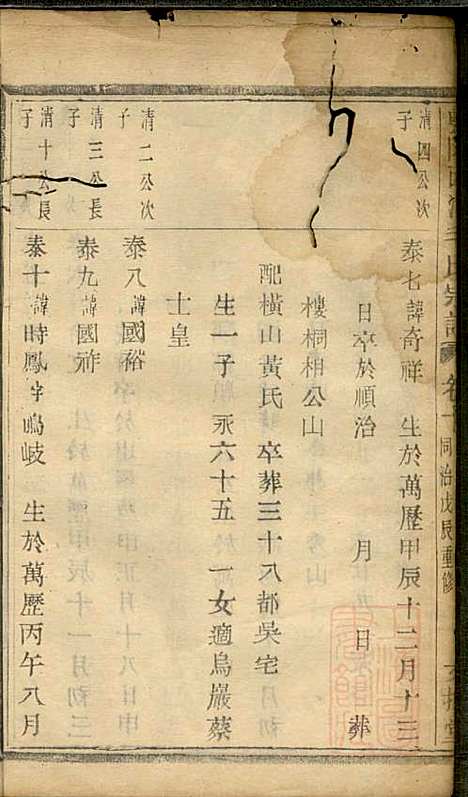 氏宗譜 卷 同治戊辰重修
清四公次子
泰七諱奇祥 生於萬歷甲辰十二月十三
日卒於順治 月 日 葬
樓桐相公山
配橫山黃氏 卒葬三十八都吳宅
生一子 永六十五 一女適烏巖蔡
士皇
清二公次子
泰八諱國裕
清三公長子
泰九諱國祚
清十公長子
泰十諱時鳳字鳴岐 生於萬歷丙午八月